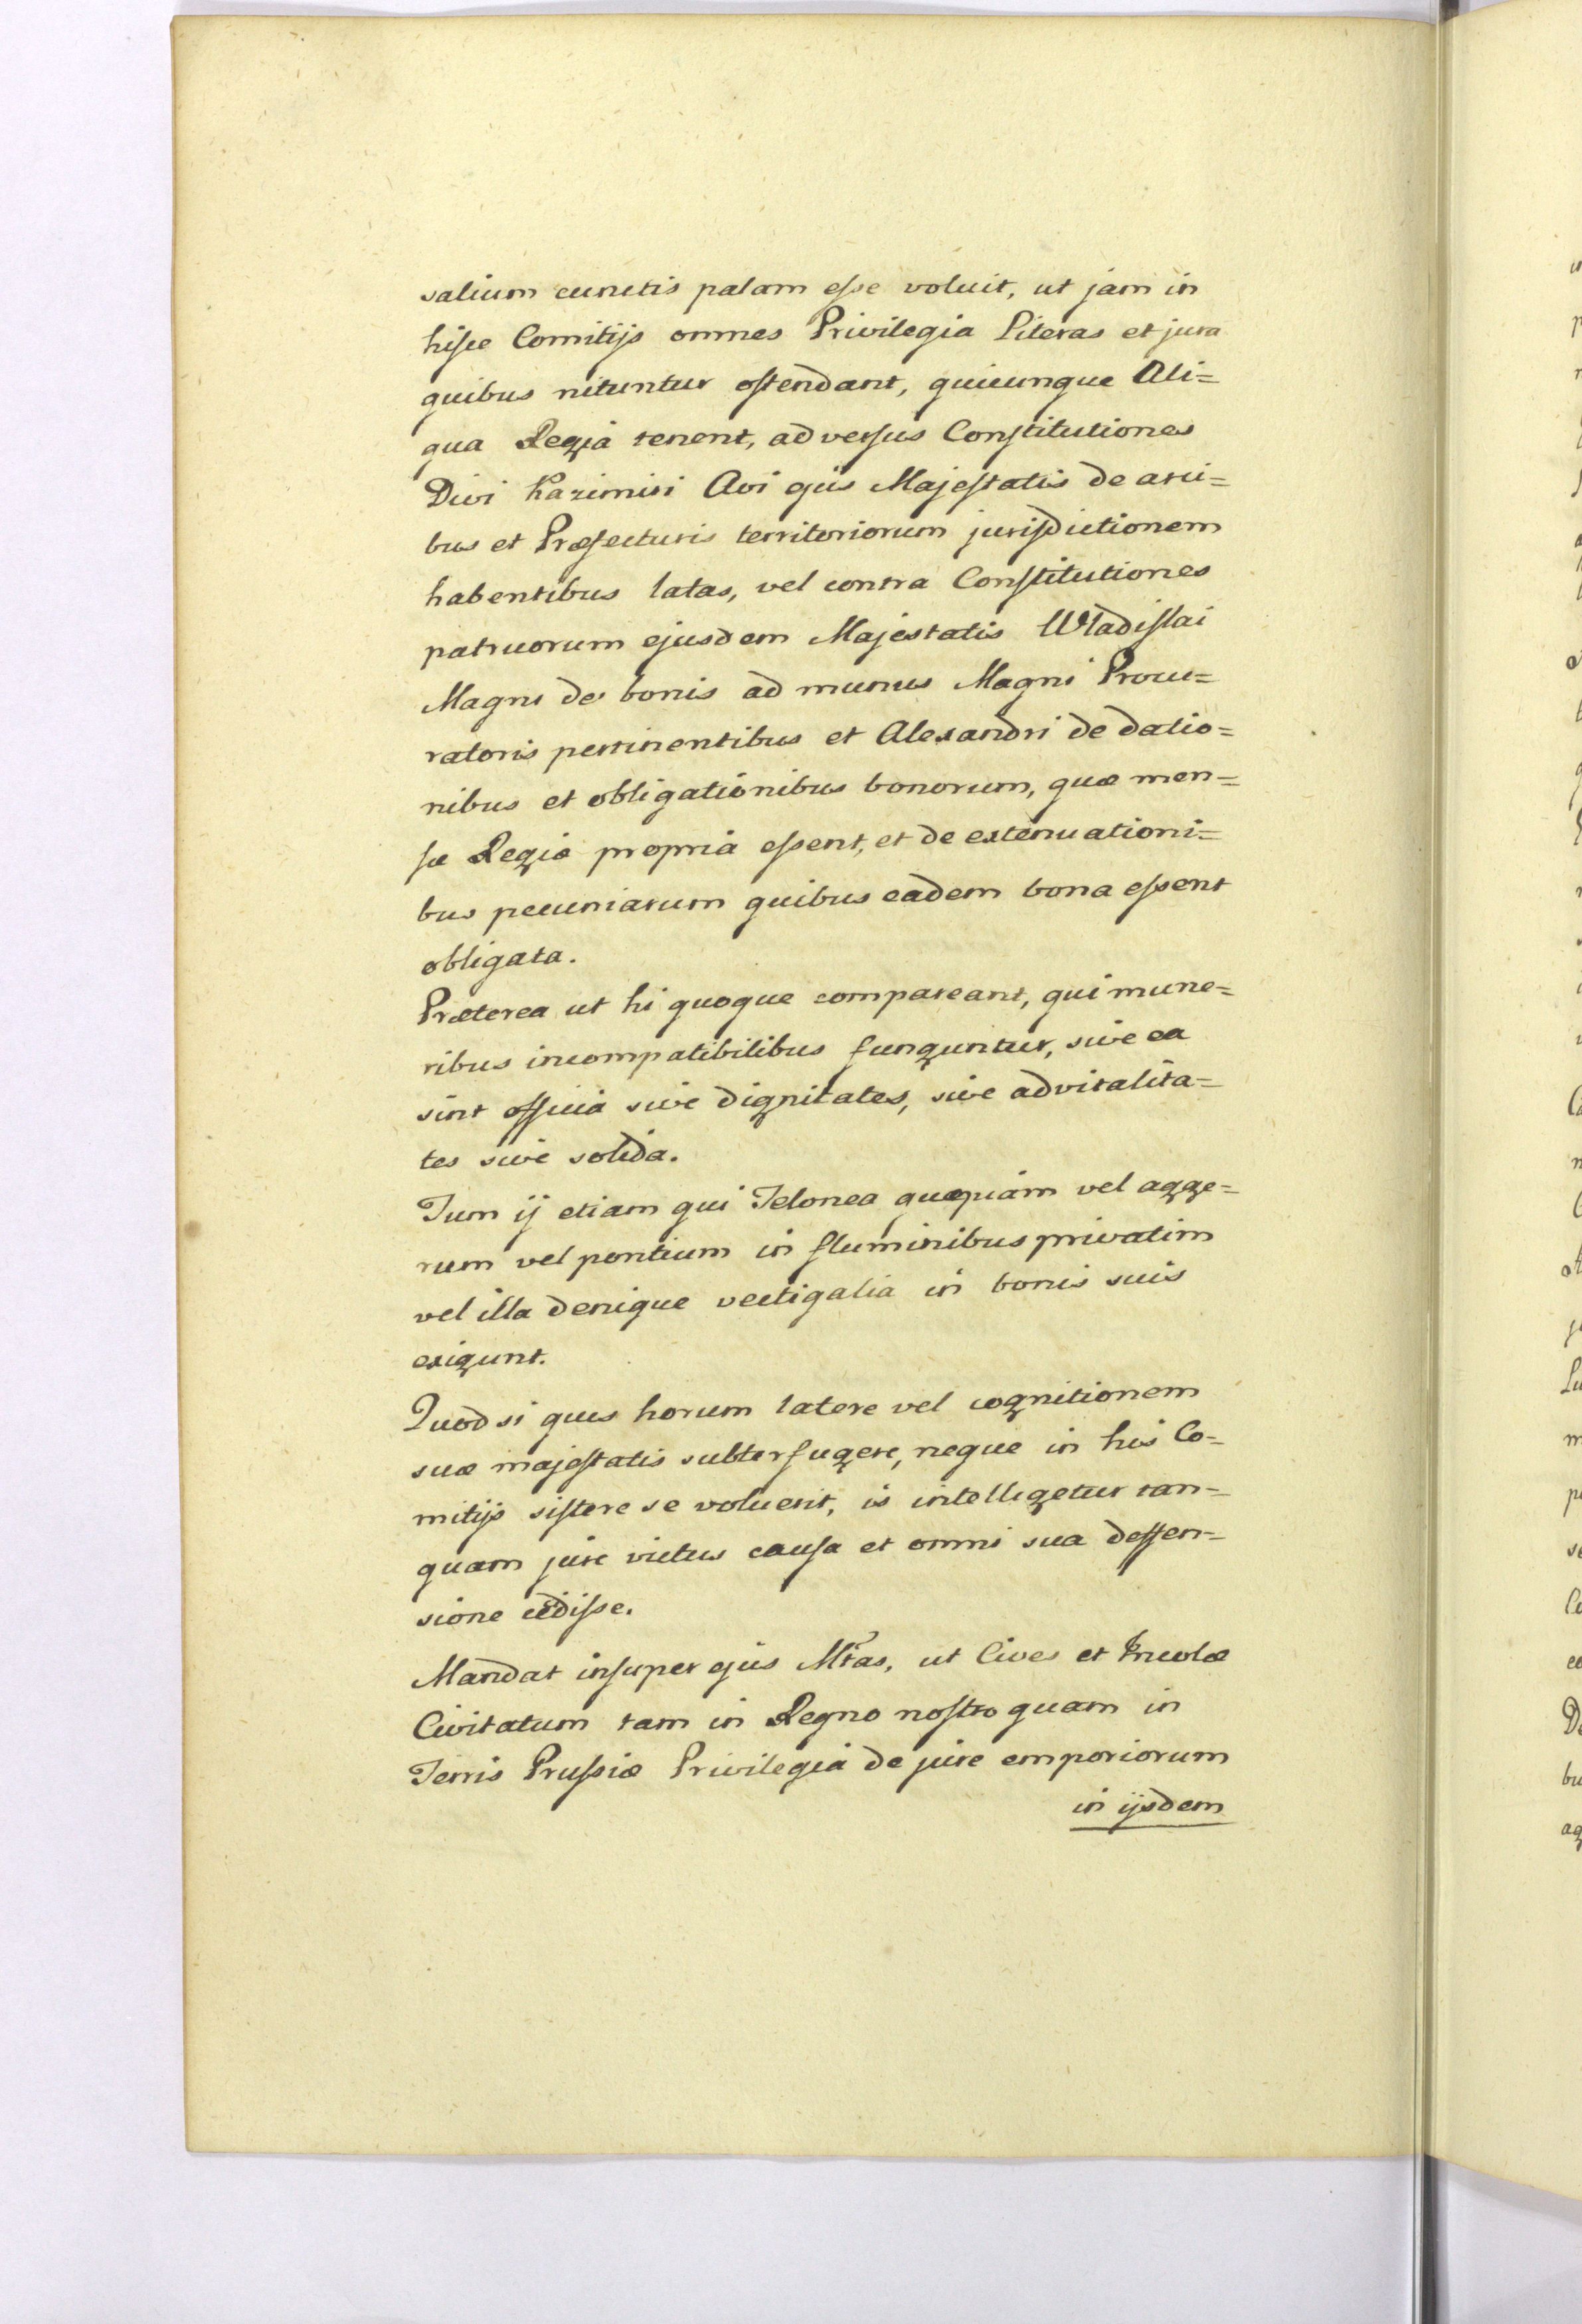 salium cunctis palam esse voluit, ut jam in
hisce Comitijs omnes Privilegia Literas et jura
quibus nituntur ostendant, quicunque Ali=
qua Regia tenent, adversus Constitutiones
Divi Kazimiri Avi ejus Majestatis de arci=
bus et Præfecturis territoriorum jurisdictionem
habentibus latas, vel contra Constitutiones
patruorum ejusdem Majestatis Wladislai
Magni de bonis ad munus Magni Procu=
ratoris pertinentibus et Alexandri de datio=
nibus et obligationibus bonorum, quæ men=
sæ Regiæ propria essent, et de extenuationi=
bus pecuniarum quibus eadem bona essent
obligata.
Præterea ut hi quoque compareant, qui mune=
ribus incompatibilibus funguntur, sive ea
sint officia sive dignitates, sive advitalita=
tes sive solida.
Tum ij etiam qui Telonea quæpiam vel agge=
rum vel pontium in fluminibus privatim
vel illa denique vectigalia in bonis suis
exigunt.
Quod si quis horum latere vel cognitionem
suæ majestatis subterfugere, neque in his Co=
mitijs sistere se voluerit, is intelligetur tan=
quam jure victus causa et omni sua deffen=
sione cedisse.
Mandat insuper ejus Mtas, ut Cives et Incolæ
Civitatum tam in Regno nostro quam in
Terris Prussiæ Privilegia de jure emporiorum
in ijsdem